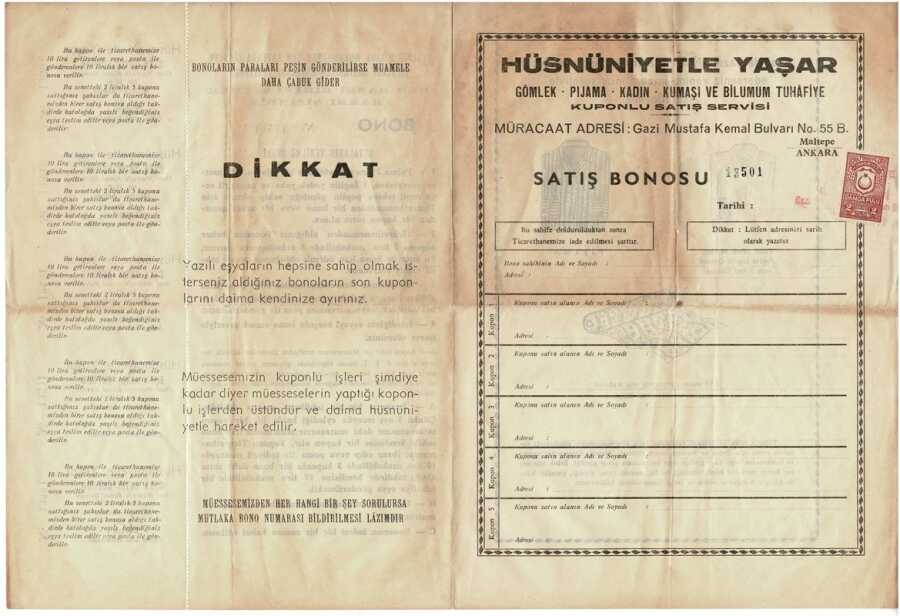 Bu kupon ile ticarethanemize
10 lira getirenlere veya posta ile
gönderenlere 10 liralık bir satış bo-
nosu verilir.
Bu senetteki 2 liralık 5 kuponu
sattığınız şahıslar da ticarethane-
mizden birer satış bonosu aldığı tak-
dirde katalogda yazılı beğendiğiniz
eşya teslim edilir veya posta ile gön-
derilir.
Bu kupon ile ticarethanemize
10 lira getirenlere veya posta ile
gönderenlere 10 liralık bir satış bo-
nosu verilir.
Bu senetteki 2 liralık 5 kuponu
sattığınız şahıslar da ticarethane-
mizden birer satış bonosu aldığı tak-
dirde katalogda yazılı beğendiğiniz
eşya teslim edilir veya posta ile gön-
derilir.
Bu kupon ile ticarethanemize
10 lira getirenlere veya posta ile
gönderenlere 10 liralık bir satış bo-
nosu verilir.
Bu senetteki 2 liralık 5 kuponu
sattığınız şahıslar da ticarethane-
mizden birer satış bonosu aldığı tak-
dirde katalogda yazılı beğendiğiniz
eşya teslim edilir veya posta ile gön-
derilir.
Bu kupon ile ticarethanemize
10 lira getirenlere veya posta ile
gönderenlere 10 liralık bir satış bo-
nosu verilir.
Bu senetteki 2 liralık 5 kuponu
sattığınız şahıslar da ticarethane-
mizden birer satış bonosu aldığı tak-
dirde katalogda yazılı beğendiğiniz
eşya teslim edilir veya posta ile gön-
derilir.
Bu kupon ile ticarethanemize
10 lira getirenlere veya posta ile
gönderenlere 10 liralık bir satış bo-
nosu verilir.
Bu senetteki 2 liralık 5 kuponu
sattığınız şahıslar da ticarethane-
mizden birer satış bonosu aldığı tak-
dirde katalogda yazılı beğendiğiniz
eşya teslim edilir veya posta ile gön-
derilir.
BONOLARIN PARALARI PEŞİN GÖNDERİLİRSE MUAMELE
DAHA ÇABUK GİDER
DİKKAT
Yazılı eşyaların hepsine sahip olmak is-
terseniz aldığınız bonoların son kupon-
larını daima kendinize ayırınız.
Müessesemizin kuponlu işleri şimdiye
kadar diyer müesselerin yaptığı kopon-
lu işlerden üstündür ve daima hüsnüni-
yetle hareket edilir.
MÜESSESEMİZDEN HER HANGİ BİR ŞEY SORULURSA
MUTLAKA BONO NUMARASI BİLDİRİLMESİ LÂZIMDIR
HÜSNÜNİYETLE YAŞAR
GÖMLEK - PIJAMA - KADIN - KUMAŞI VE BİLUMUM TUHÂFİYE
KUPONLU SATIŞ SERVİSİ
MÜRACAAT ADRESİ : Gazi Mustafa Kemal Bulvarı No. 55 B.
Maltepe
ANKARA
SATIŞ BONOSU 12501
Tarihi :
DAMGA PULU
Bu sahife doldurulduktan sonra
Ticarethanemize iade edilmesi şarttır.
Dikkat : Lütfen adresinizi sarih
olarak yazınız
Bono sahibinin Adı ve Soyadı :
Adresi :
Kupon 1
Kuponu satın alanın Adı ve Soyadı :
Adresi :
Kupon 2
Kuponu satın alanın Adı ve Soyadı :
Adresi :
Kupon 3
Kuponu satın alanın Adı ve Soyadı :
Adresi :
Kupon 4
Kuponu satın alanın Adı ve Soyadı :
Adresi :
Kupon 5
Kuponu satın alanın Adı ve Soyadı :
Adresi :